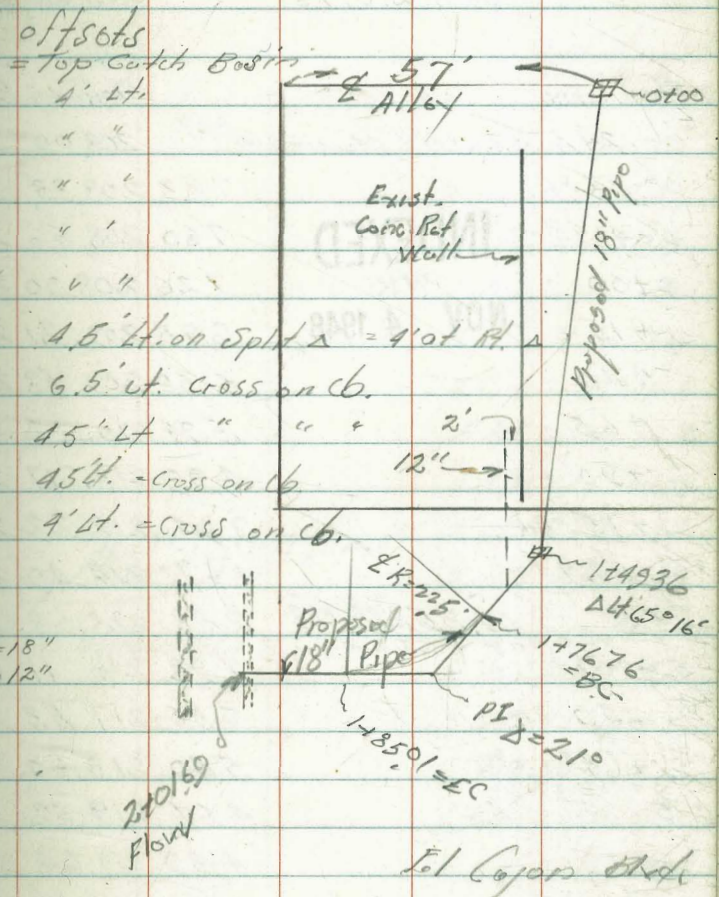 offsets
= Top Catch Basin
4' Lt.
" "
" "
" "
" "
4.5' Lt. on Split Δ = 4' at Rt. Δ
6.5' Lt. Cross on Cb.
4.5' Lt " " "
4.5' Lt. = Cross on Cb
4' Lt. = Cross on Cb.
=18"
=12"
57'
℄ Alley
0+00
Exist.
Conc Ret
Wall
Proposed 18" Pipe
INDEXED
NOV 4 1949
2'
12"
1+4936
Δ Lt 65° 16'
℄ R=225'
1+7676
= BC
Proposed
18" Pipe
PI
Δ=21°
1+8501=EC
2+0169
Flow
El Cajon Blvd.